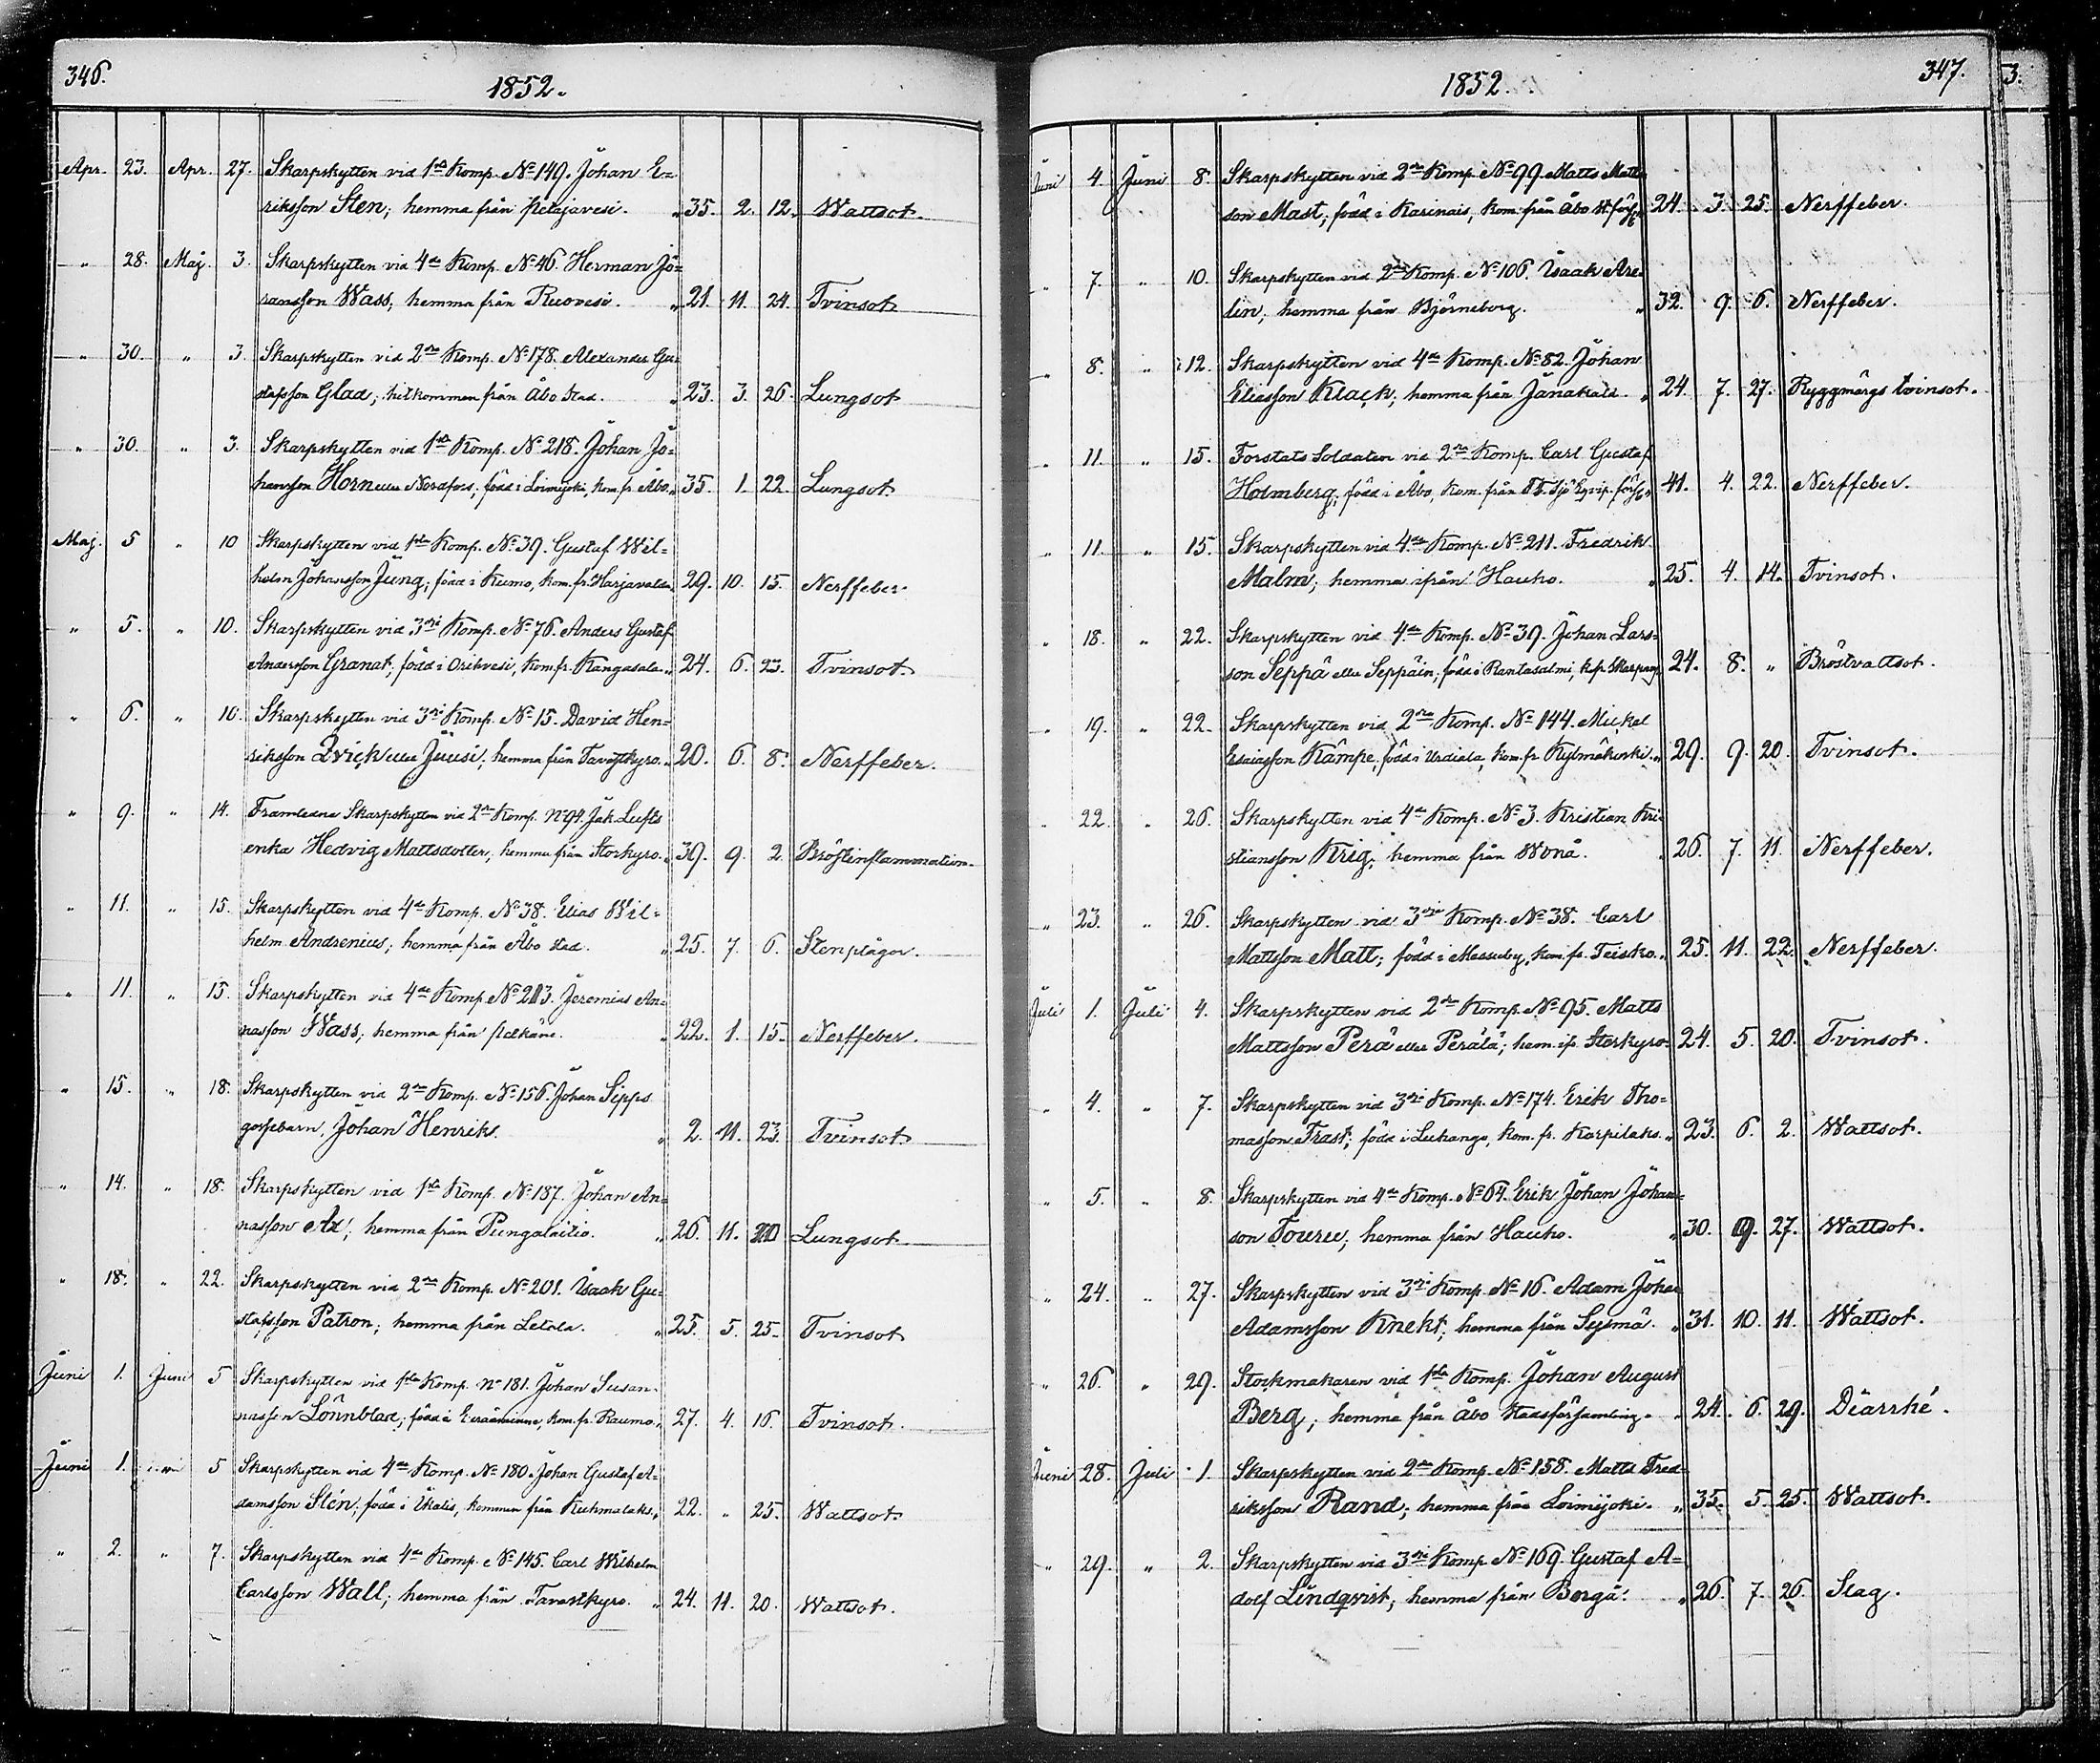 346.
1852.
Apr. 23. Apr. 27. Skarpskytten vid 1sta Komp. No 149. Johan E=
riksson Sten; hemma från Petäjävesi. " 35. 2. 12. Wattsot.
" 28. Maj. 3. Skarpskytten vid 4de Komp. No 46. Herman Jö=
ransson Wass; hemma från Ruovesi. " 21. 11. 24. Tvinsot
" 30. " 3. Skarpskytten vid 2dra Komp. No 178. Alexander Gu=
stafsson Glad; hitkommen från Åbo stad. " 23. 3. 26. Lungsot
" 30. " 3. Skarpskytten vid 1sta Komp. No 218. Johan Jo=
hansson Horn eller Nordfors; född i Loimijoki, kom. fr. Åbo. " 35. 1. 22. Lungsot
Maj. 5 " 10 Skarpskytten vid 1sta Komp. No 39. Gustaf Wil=
helm Johansson Jung; född i Kumo, kom. fr. Harjavalda " 29. 10. 15. Nerffeber
" 5. " 10. Skarpskytten vid 3dje Komp. No 76. Anders Gustaf
Andersson Granat; född i Orihvesi, kom. fr. Kangasala. " 24. 6. 23. Tvinsot.
" 6. " 10. Skarpskytten vid 3dje Komp. No 15. David Hen=
riksson Qvick eller Juusi; hemma från Tavastkyro. " 20. 6. 8. Nerffeber.
" 9. " 14. Framledne Skarpskytten vid 2dra Komp. No 94. Jak. Lufts
enka Hedvig Mattsdotter; hemma från Storkyro. " 39. 9. 2 Bröstinflammation.
" 11. " 15. Skarpskytten vid 4de Komp. No 38. Elias Wil=
helm Andrenius; hemma från Åbo stad. " 25. 7. 6. Stenplågor.
" 11. " 15. Skarpskytten vid 4de Komp. No 213. Jeremias An=
nasson Wass; hemma från Pelkäne. " 22. 1. 15. Nerffeber.
" 15. " 18. Skarpskytten vid 2dra Komp. No 156. Johan Sipps
gossebarn, Johan Henrik. " 2. 11. 23. Tvinsot
" 14. " 18. Skarpskytten vid 1sta Komp. No 187. Johan An=
nasson Ax; hemma från Pungalaitio. " 26. 11. 20 Lungsot
" 18. " 22. Skarpskytten vid 2dra Komp. No 201. Isaak Gu=
stafsson Patron; hemma från Letala. " 25. 5. 25. Tvinsot
Juni 1. Juni 5 Skarpskytten vid 1sta Komp. No 181. Johan Susan=
nasson Lönnblad; född i Euraåminne, kom. fr. Raumo. " 27. 4. 16. Tvinsot.
Juni 1. Juni 5 Skarpskytten vid 4de Komp. No 180. Johan Gustaf A=
damsson Stén; född i Ikalis, kommen från Kuhmalaks. " 22. " 25. Wattsot
" 2. " 7. Skarpskytten vid 4de Komp. No 145. Carl Wilhelm
Carlsson Wall; hemma från Tavastkyro. " 24. 11. 20. Wattsot.
1852.
347.
3.
Juni 4 Juni 8. Skarpskytten vid 2dra Komp. No 99. Matts Matts
son Mast; född i Karinais, kom. från Åbo st. förs. 24. 3. 25. Nerffeber.
" 7. " 10. Skarpskytten vid 2dra Komp. No 106. Isaak Are=
lin; hemma från Björneborg. " 32. 9. 6. Nerffeber.
" 8. " 12. Skarpskytten vid 4de Komp. No 82. Johan
Eliasson Klack; hemma från Janakala. " 24. 7. 27. Ryggmärgs tvinsot.
" 11. " 15. Forstats Soldaten vid 2dra Komp. Carl Gustaf
Holmberg; född i Åbo, kom. från Sjö Eqvip. förs. 41. 4. 22. Nerffeber.
" 11. " 15. Skarpskytten vid 4de Komp. No 211. Fredrik
Malm; hemma ifrån Hauho. " 25. 4. 14. Tvinsot.
" 18. " 22. Skarpskytten vid 4de Komp. No 39. Johan Lars=
son Seppä eller Seppäin; född i Rantasalmi, 24. 8. " Bröstvattsot.
" 19. " 22. Skarpskytten vid 2dra Komp. No 144. Mickel
Esaiasson Kämpe; född i Urdiala, kom. fr. Kylmäkoski. " 29. 9. 20. Tvinsot.
" 22. " 26. Skarpskytten vid 4de Komp. No 3. Kristian Kri=
stiansson Krig; hemma från Wånå. " 26. 7. 11. Nerffeber.
" 23. " 26. Skarpskytten vid 3dje Komp. No 38. Carl
Mattsson Matt; född i Messuby, kom. fr. Teisko. " 25. 11. 22. Nerffeber.
Juli 1. Juli 4. Skarpskytten vid 2dra Komp. No 95. Matts
Mattsson Perä eller Perälä; hem. ifr. Storkyro. 24. 5. 20. Tvinsot.
" 4. " 7. Skarpskytten vid 3dje Komp. No 174. Erik Tho=
masson Trast; född i Luhango, kom. fr. Korpilaks. " 23. 6. 2. Wattsot.
" 5. " 8. Skarpskytten vid 4de Komp. No 64. Erik Johan Johans=
son Touru; hemma från Hauho. " 30. 9. 27. Wattsot.
" 24. " 27. Skarpskytten vid 3dje Komp. No 16. Adam Johan
Adamsson Knekt; hemma från Sysmä. " 31. 10. 11. Wattsot.
" 26. " 29. Stockmakaren vid 1sta Komp. Johan August
Berg; hemma från Åbo stadsförsamling. " 24. 6. 29. Diarrhé.
Juni 28. Juli 1 Skarpskytten vid 2dra Komp. No 158. Matts Fred=
riksson Rand; hemma från Loimijoki. " 35. 5. 25. Wattsot.
" 29. " 2. Skarpskytten vid 3dje Komp. No 169. Gustaf A=
dolf Lindqvist; hemma från Borgå. " 26. 7. 26. Slag.